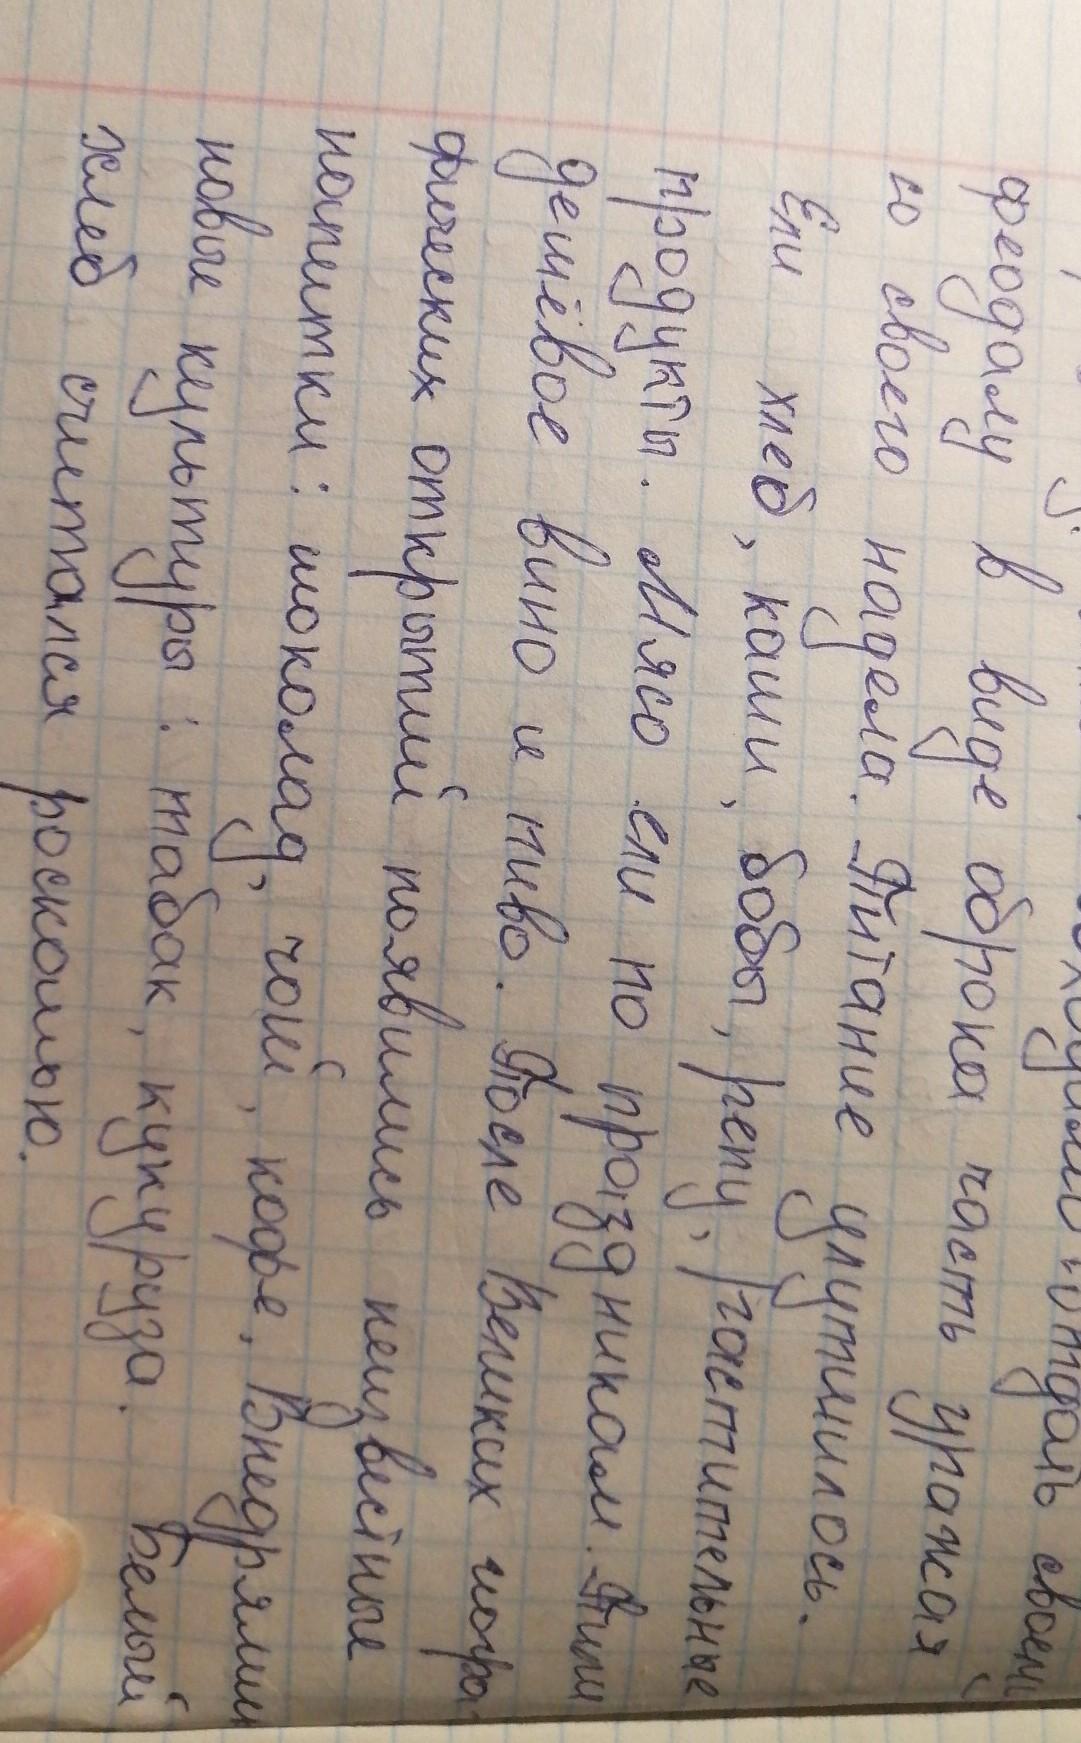 отдать своему
феодалу в виде оброка часть урожая
со своего надела. Питание улутчилось.
Ели хлеб, каши, бобы, репу, растительные
продукты. Мясо ели по праздникам. Пили
дешёвое вино и пиво. После Великих геогра-
фических открытий появились неизвестные
напитки: шоколад, чай, кофе. Внедряли
новые культуры: табак, кукуруза. Белый
хлеб считался роскошью.